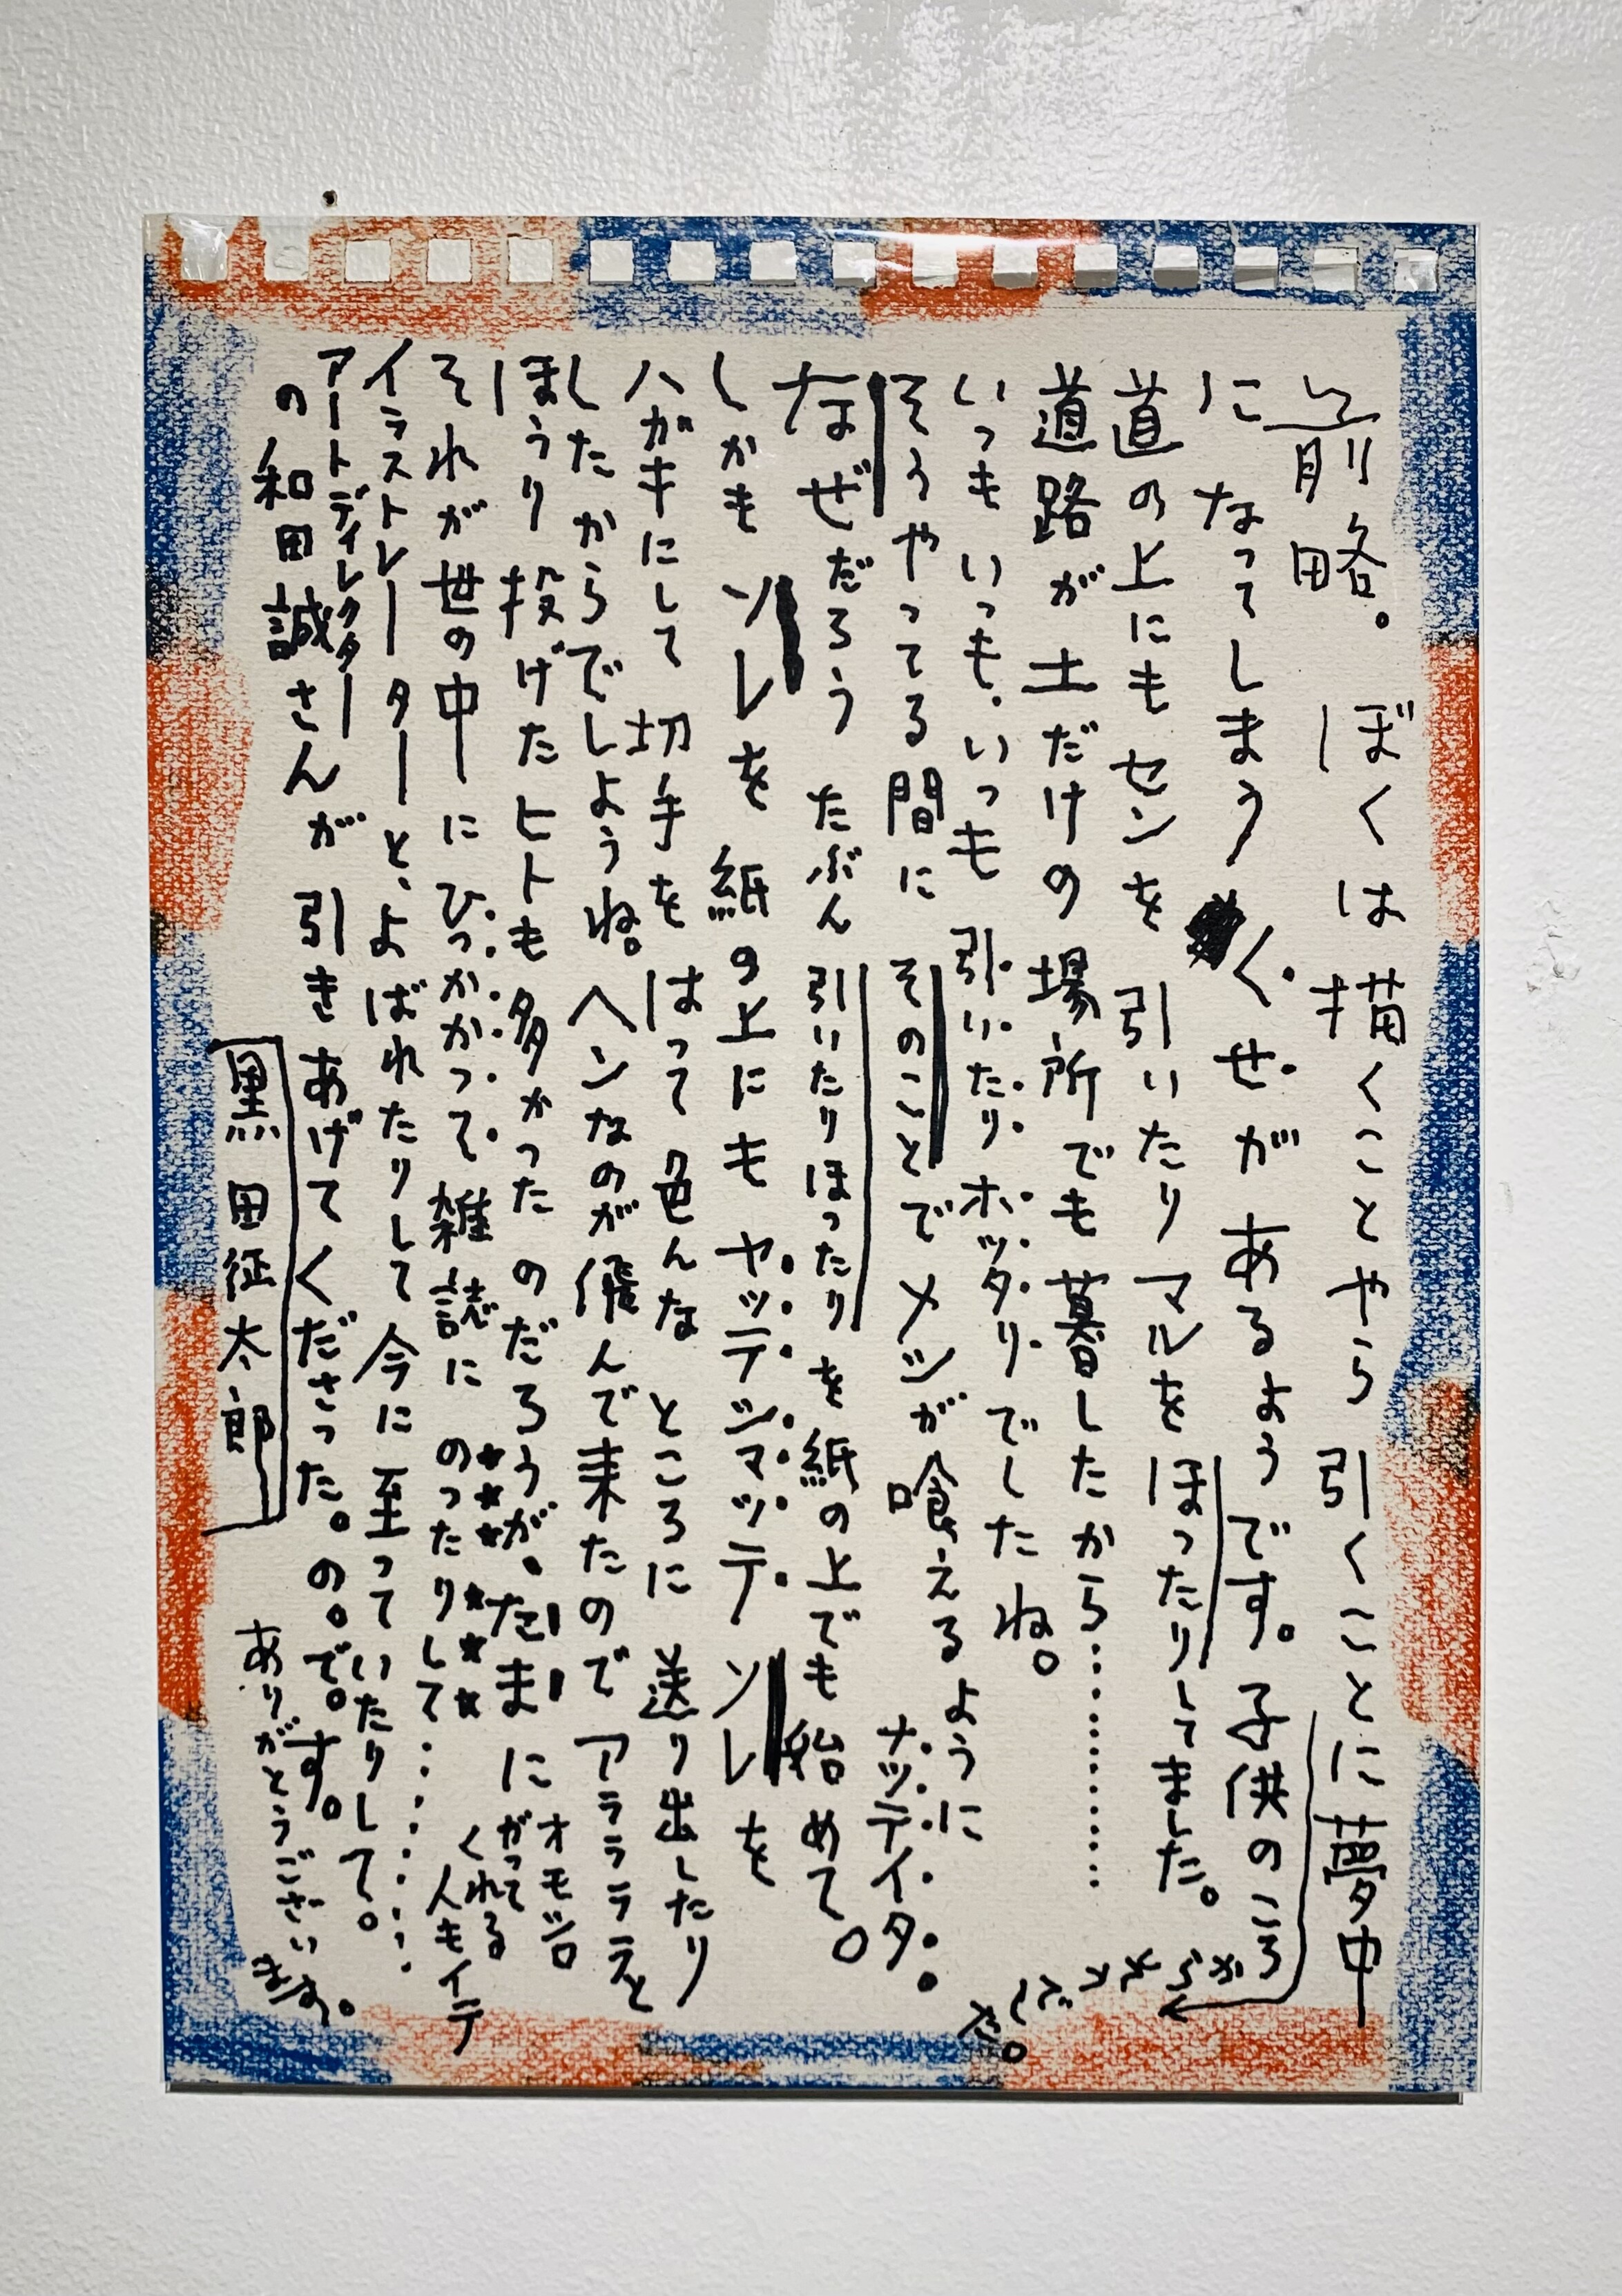 前略。ぼくは描くことやら引くことに夢中
になってしまうくせがあるようです。子供のころ
からずっとです。
道の上にもセンを引いたりマルをほったりしてました。
道路が土だけの場所でも暮したから…………
いっもいっも、いっも引いたりホッタリでしたね。
そうやってる間にそのことでメシが喰えるように
ナッテイタ。
なぜだろうたぶん引いたりほったりを紙の上でも始めて。
しかもソレを紙の上にもヤッテシマッテソレを
ハガキにして切手をはって色んなところに送り出したり
したからでしようね。ヘンなのが飛んで来たのでアララララと
ほうり投げたヒトも多かったのだろうが、たまに
オモシロ
がって
くれる
人もイテ
それが世の中にひっかかって雑誌にのったりして……
イラストレーターと、よばれたりして今に至っていたりして。
アートディレクター
の和田誠さんが引きあげてくださった。の。で。す。
黒田征太郎
ありがとうござい
ます。